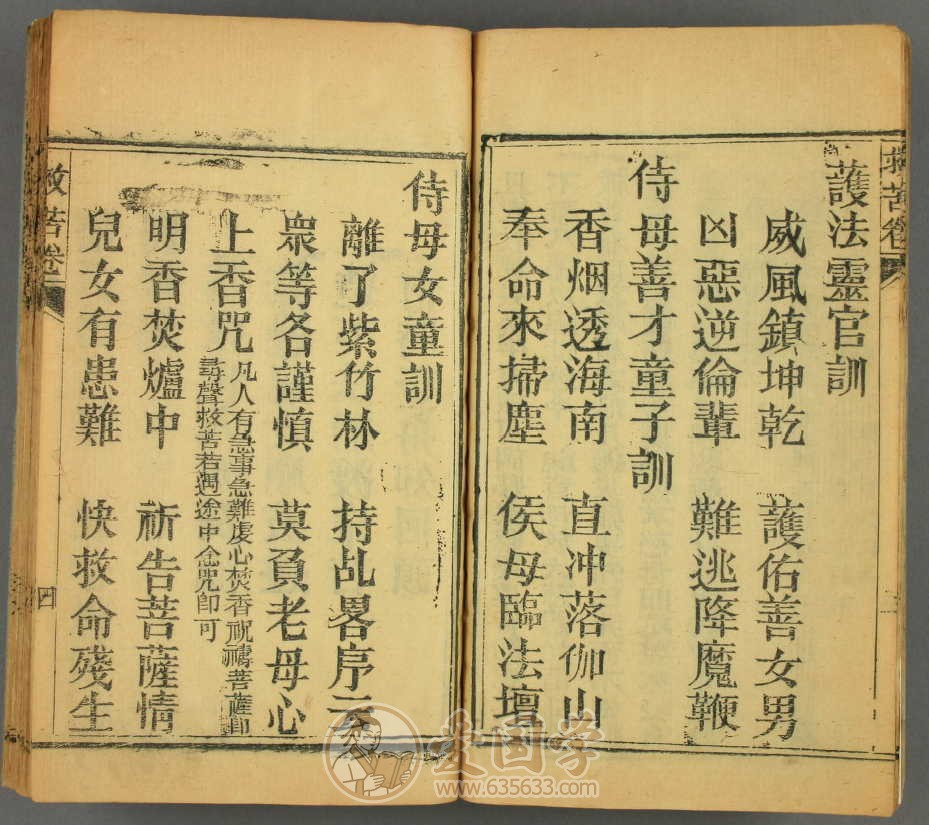 救苦卷
護法靈官訓
威風鎮坤乾 護佑善女男
凶惡逆倫輩 難逃降魔鞭
侍母善才童子訓
香烟透海南 直冲落伽山
奉命來掃塵 侯母臨法壇
侍母女童訓
離了紫竹林 持乩畧序云
眾等各謹慎 莫負老母心
上香咒 凡人有急事急難虔心焚香祝禱菩薩卽
尋聲救苦若遇途中念咒卽可
明香焚爐中 祈告菩薩情
兒女有患難 快救命殘生
救苦卷 四
爱国学
www.635633.com